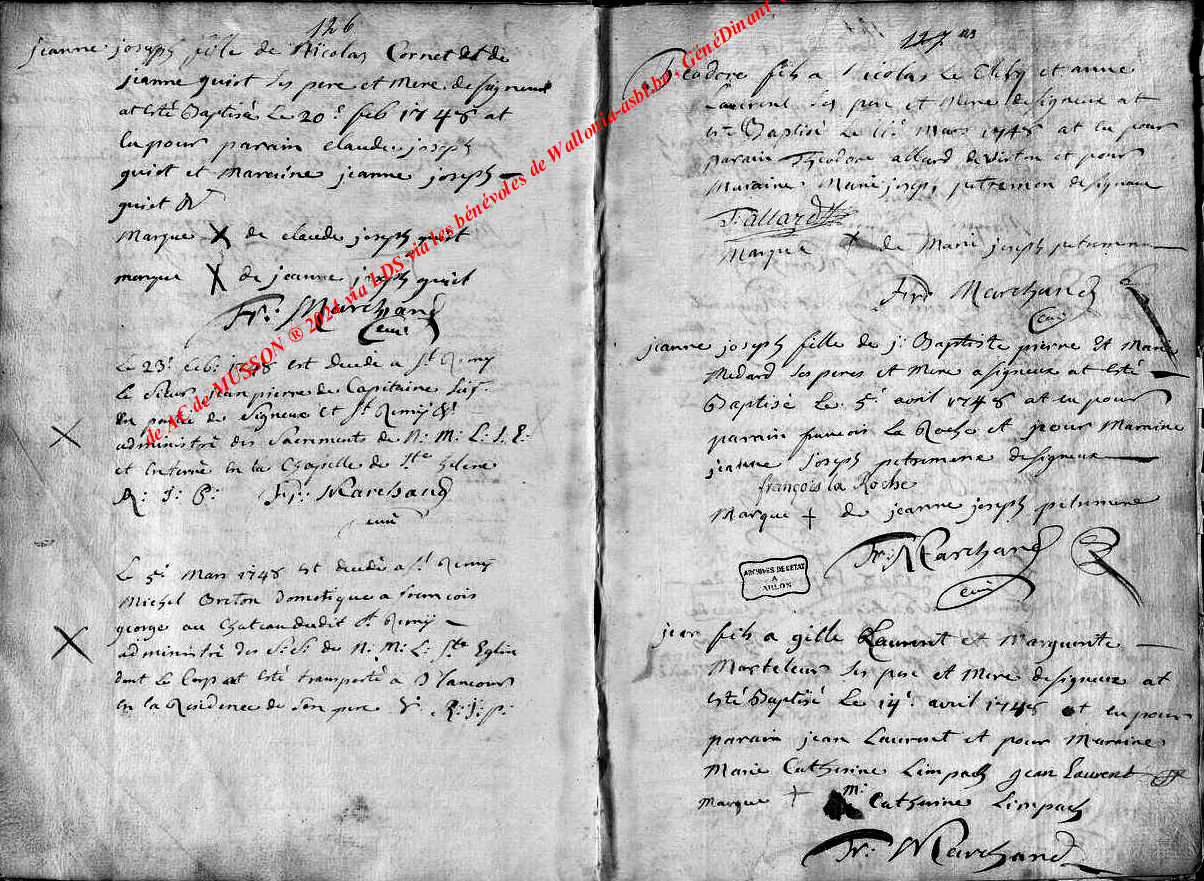 126
jeanne joseph fille de Nicolas Cornet et de
jeanne quiot ses pere et Mere de signeux
at esté Baptisé Le 20e feb 1748 at
eu pour parain claude joseph
quiot et Maraine jeanne joseph
quiot
Marque X de claude joseph quiot
marque X de jeanne joseph quiot
Fr: Marchand
curé
Le 23e feb: 1748 est decedé a St Remy
Le Sieur jean pierre de Capitaine
en partie de Signeux et St Remy
administré des Sacrements de N: M: L: S: E:
et enterré en la Chapelle de Ste helene
R: J: P: Fr: Marchand
curé
Le 5e Mars 1748 est decedé a St Remy
Michel Breton Domestique a francois
george au Chateau dudit St Remy
administré des S: S: de N: M: L: Ste Eglise
dont Le Corps at esté transporté a
en la Residence de son pere R: J: P:
127
Teodore fils a Nicolas Le et anne
Laurent ses pere et Mere de signeux at
esté Baptisé Le Mars 1748 at eu pour
parain Theodore allard de virton et pour
Maraine Marie joseph petremon de signeux
T allard
Marque + de Marie joseph petremene
Fr: Marchand
curé
jeanne joseph fille de j: Baptiste pierre et Marie
Medard ses peres et Mere a signeux at esté
Baptisé Le 5e avril 1748 at eu pour
parain francois La Roche et pour Maraine
jeanne joseph petremene de signeux
françois la Roche
Marque + de jeanne joseph petremene
Fr: Marchand
curé
ARCHIVES DE L'ETAT
A
ARLON
jean fils a gille Laurent et Marguerite
Marteleur ses pere et Mere de signeux at
esté Baptisé Le 14e avril 1748 et eu pour
parain jean Laurent et pour Maraine
Marie Catherine Limpach jean Laurent
Marque + m: Catherine Limpach
Fr: Marchand
de AC de MUSSON ® 2024 via LDS via les bénévoles de Wallonia-asbl.be, GénéDinant